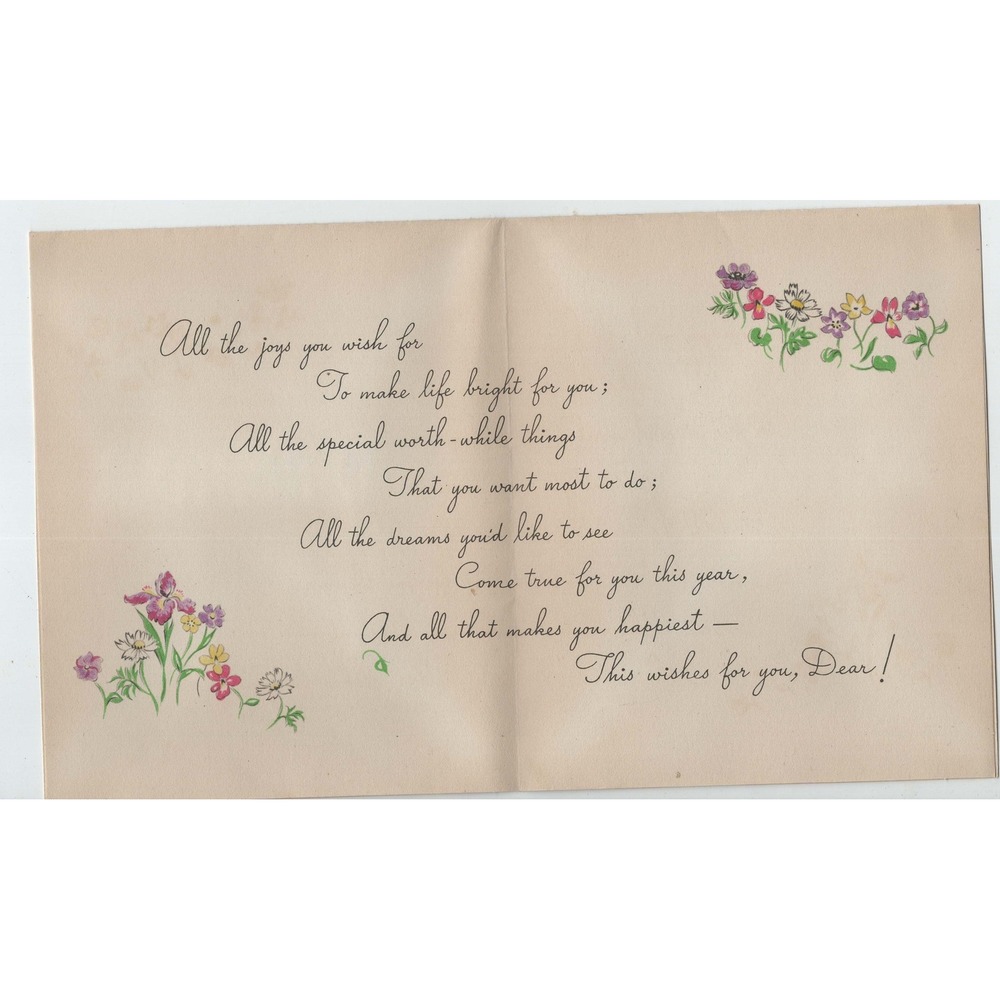 All the joys you wish for
To make life bright for you;
All the special worth-while things
That you want most to do;
All the dreams you'd like to see
Come true for you this year,
And all that makes you happiest —
This wishes for you, Dear!